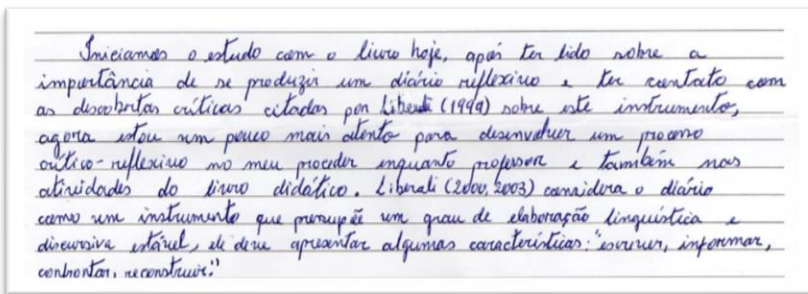 Iniciamos o estudo com o livro hoje, após ter lido sobre a
importância de se produzir um diário reflexivo e ter contato com
as descobertas críticas citadas por Liberali (1999) sobre este instrumento,
agora estou um pouco mais atento para desenvolver um processo
crítico-reflexivo no meu proceder enquanto professor e também nas
atividades do livro didático. Liberali (2000, 2003) considera o diário
como um instrumento que pressupõe um grau de elaboração linguística e
discursiva estável, ele deve apresentar algumas características: "escrever, informar,
confrontar, reconstruir."